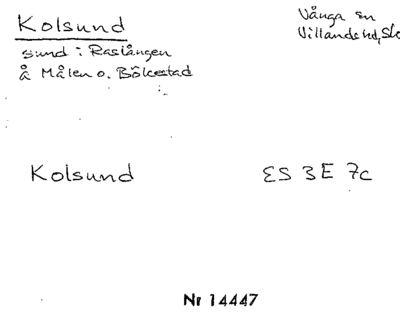 Kolsund
sund i Raslången
å Målen o. Bökestad
Vånga sn
Villands hd, Sk
Kolsund
ES 3E 7c
Nr 14447